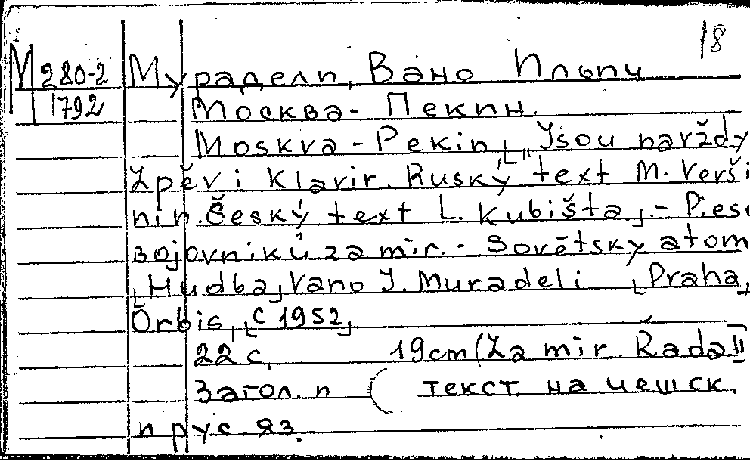 18
М 280-2 Мурадели, Вано Ильич
1792 Москва - Пекин.
Moskva - Pekin, [„Jsou navždy
Zpěv i klavir. Ruský text M. Verši
nin. Český text L. Kubišta], - Piesň
bojovníků za mír. - Sovětsky atom
[Hudba] Vano J. Muradeli [Praha,
Orbis], [c 1952]
22 с. 19 cm (Za mír. Řada II
Загол. и ( текст на чешск.
и рус яз.